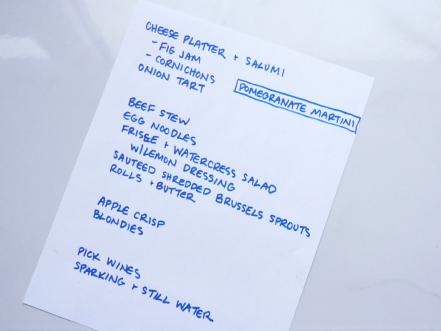 CHEESE PLATTER + SALUMI
- FIG JAM
- CORNICHONS
ONION TART
POMEGRANATE MARTINI
BEEF STEW
EGG NOODLES
FRISÉE + WATERCRESS SALAD
W/LEMON DRESSING
SAUTEED SHREDDED BRUSSELS SPROUTS
ROLLS + BUTTER
APPLE CRISP
BLONDIES
PICK WINES
SPARKING + STILL WATER